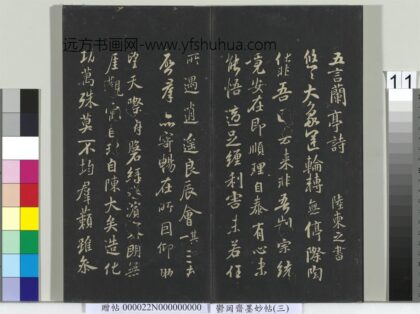 远方书画网-www.yfshuhua.com
五言蘭亭詩 陸柬之書
悠々大象運輪轉無停際陶
化非吾因去來非吾制宗統
竟安在即順理自泰有心未
能悟適足纏利害未若任
所遇逍遙良辰會 其一 三春
啓羣品寄暢在所因仰
望天際俯磐綠水濱寥朗無
厓觀寓目理自陳大矣造化
功萬殊莫不均羣籟雖參
11
贈帖 000022N000000000
鬱岡齋墨妙帖(三)